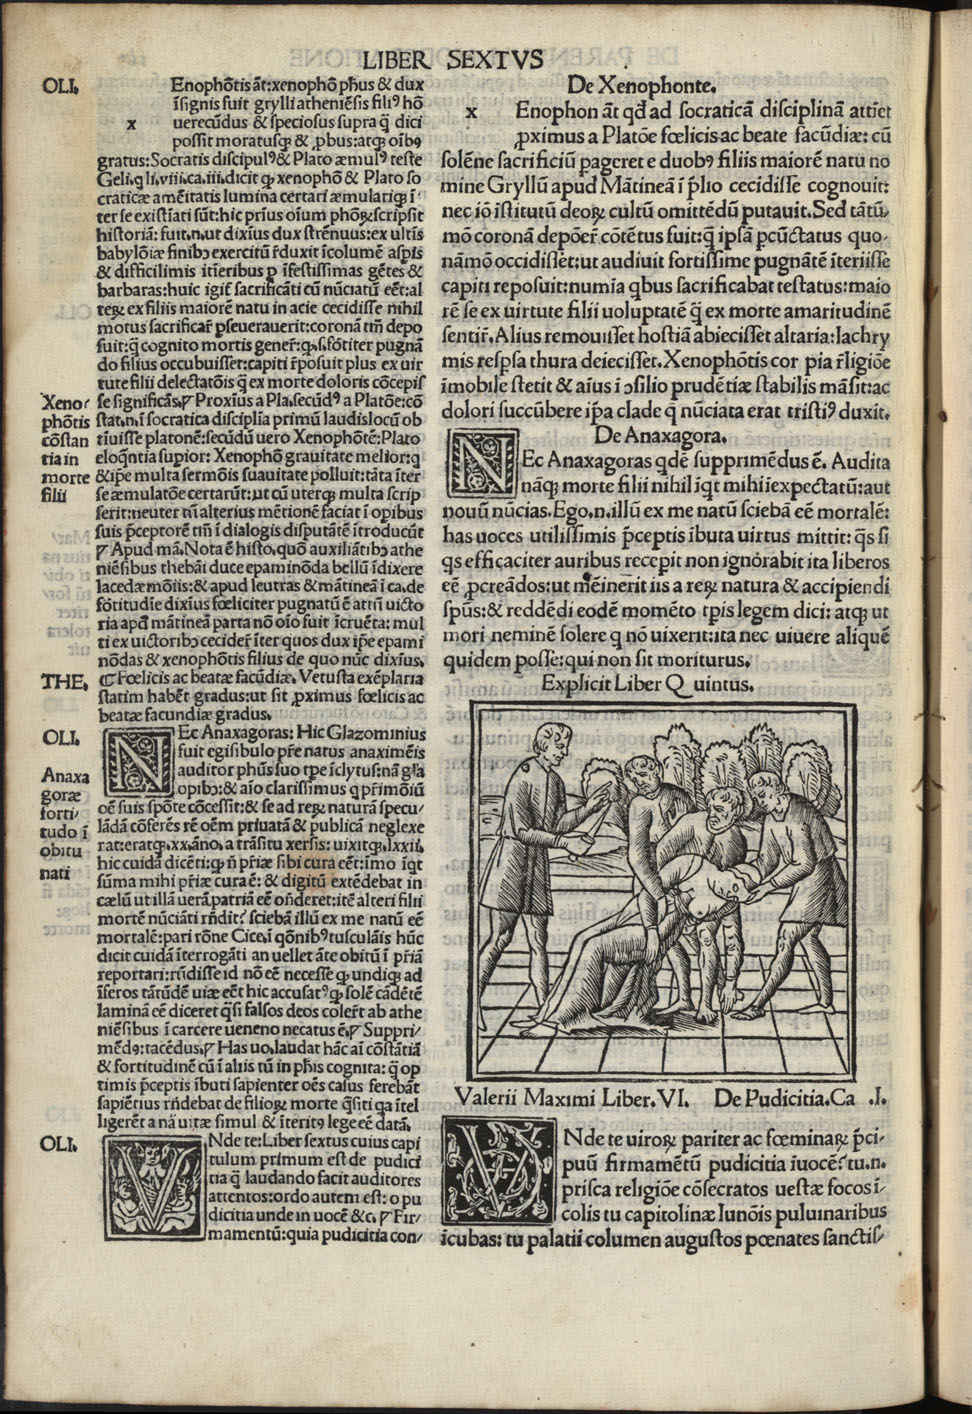 LIBER SEXTVS
OLI.
Enophõtis ãt:xenophõ pħus & dux
ĩsignis fuit grylli atheniẽsis filiꝰ hõ
x uerecũdus & speciosus supra q̃ dici
possit moratusq; & ꝓbus:atq; oĩbꝰ
gratus:Socratis discipulꝰ& Plato æmulꝰ teste
Geli.q li.viii.ca.iii.dicit ꝙ xenophõ & Plato so
craticæ amẽitatis lumina certari æmulariq; ĩ
ter se existĩati sũt:hic prĩus oĩum phõꝝ scripsit
historiã: fuit.n.ut dixĩus dux strẽnuus:ex ultĩs
babylõiæ finibꝰ exercitũ r̃duxit ĩcolumẽ aspĩs
& difficilimis itĩeribus ꝑ ĩfestissimas gẽtes &
barbaras:huic igit̃ sacrificãti cũ nũciatũ eẽt:al
teꝝ ex filiis maiorẽ natu in acie cecidisse nihil
motus sacrificar̃ pseuerauerit:coronã tm̃ depo
suit:q̃ cognito mortis gener̃:ꝙ.s.fõtiter pugnã
do filius occubuisset:capiti r̃posuit plus ex uir
tute filii delectatõis q̃ ex morte doloris cõcepis
se significãs.
Proxĩus a Pla.secũdꝰ a Platõe:cõ
stat.n.ĩ socratica disciplĩa primũ laudis locũ ob
tĩuisse platonẽ:secũdũ uero Xenophõtẽ:Plato
eloqñtia supior: Xenophõ grauitate melior:q
&ip̃e multa sermõis suauitate polluit:tãta ĩter
se æmulatõe certarũt:ut cũ uterq; multa scrip
serit:neuter tñ alterius mẽtionẽ faciat ĩ opibus
suis p̃ceptorẽ tm̃ ĩ dialogis disputãtẽ ĩtroducũt
Apud mã.Nota ẽ histo.quõ auxiliãtibꝰ athe
niẽsibus thebãi duce epaminõda bellũ ĩdixere
lacedæmõiis:& apud leutras & mãtineã ĩ ca.de
fõtitudĩe dixĩus fœliciter pugnatũ ẽ attñ uicto
ria apđ mãtineã parta nõ oĩo fuit ĩcruẽta: mul
ti ex uictoribꝰ cecider̃ ĩter quos dux ip̃e epami
nõdas & xenophõtis filius de quo nũc dixĩus.
Xeno-
phõtis
cõstan
tia in
morte
filii
THE.
Fœlicis ac beatæ facũdiæ. Vetusta exẽplaria
statim habẽt gradus:ut sit ꝓximus fœlicis ac
beatæ facundiæ gradus.
OLI.
NEc Anaxagoras: Hic Glazominius
fuit egisibulo pr̃e natus anaximẽis
auditor phũs suo tp̃e ĩclytus:nã gr̃a
opibꝰ:& aĩo clarissimus q pr̃imõiũ
oẽ suis spõte cõcessit:& se ad reꝝ naturã specu-
lãdã cõferẽs rẽ oẽm priuatã & publicã neglexe
rat:eratq;.xx.ãno.a trãsitu xersis: uixitq;.lxxii.
hic cuidã dicẽti:ꝙ ñ pr̃iæ sibi cura eẽt:ĩmo ĩqt
sũma mihi pr̃iæ cura ẽ: & digitũ extẽdebat in
cælũ ut illã uerã.patriã eẽ oñderet:itẽ alteri filii
mortẽ nũciãti rñdit: sciebã illũ ex me natũ eẽ
mortalẽ:pari rõne Cice.ĩ qõnibꝰtusculãis hũc
dicit cuidã ĩterrogãti an uellet ãte obitũ ĩ pr̃iã
reportari:rñdisse id nõ eẽ necesse ꝙ undiq; ad
ĩferos tãtũdẽ uiæ eẽt hic accusatꝰꝙ solẽ cãdẽtẽ
laminã eẽ diceret q̃si falsos deos coler̃t ab athe
niẽsibus ĩ carcere ueneno necatus ẽ.
Suppri-
mẽdꝰ:tacẽdus.
Has uo.laudat hãc aĩ cõstãtiã
& fortitudinẽ cũ ĩ aliis tũ in pħis cognita: q̃ op
timis p̃ceptis ĩbuti sapienter oẽs casus ferebãt
sapiẽtius rñdebat de filioꝝ morte q̃siti qa ĩtel
ligerẽt a nã uitæ simul & ĩteritꝰ lege eẽ datã.
Anaxa
goræ
forti-
tudo ĩ
obitu
nati
OLI.
VNde te:Liber sextus cuius capi
tulum primum est de pudici
tia q̃ laudando facit auditores
attentos:ordo autem est: o pu
dicitia unde in uocẽ &c.
Fir-
mamentũ:quia pudicitia con-
De Xenophonte.
x Enophon ãt qđ ad socraticã disciplinã attiet
ꝓximus a Platõe fœlicis ac beate facũdiæ: cũ
solẽne sacrificiũ pageret e duobꝰ filiis maiorẽ natu no
mine Gryllũ apud Mãtineã ĩ p̃lio cecidisse cognouit:
nec iõ ĩstitutũ deoꝝ cultũ omittẽdũ putauit.Sed tãtũ-
mõ coronã depõer̃ cõtẽtus fuit:q̃ ipsã pcũctatus quo-
nãmõ occidisset:ut audiuit fortissime pugnãtẽ ĩteriisse
capiti reposuit:numĩa qbus sacrificabat testatus:maio
rẽ se ex uirtute filii uoluptatẽ q̃ ex morte amaritudinẽ
sentir̃.Alius remouisset hostiã abiecisset altaria:lachry
mis respsa thura deiecisset.Xenophõtis cor pia r̃ligiõe
ĩmobile stetit & aĩus ĩ ↄsilio prudẽtiæ stabilis mãsit:ac
dolori succũbere ip̃a clade q nũciata erat tristiꝰ duxit.
De Anaxagora.
NEc Anaxagoras qdẽ supprimẽdus ẽ. Audita
nãq; morte filii nihil ĩqt mihi ĩexpectatũ:aut
nouũ nũcias.Ego.n.illũ ex me natũ sciebã eẽ mortalẽ:
has uoces utilissimis p̃ceptis ĩbuta uirtus mittit: q̃s si
qs efficaciter auribus recepit non ignõrabit ita liberos
eẽ ꝓcreãdos:ut mẽinerit iis a reꝝ natura & accipiendi
spũs:& reddẽdi eodẽ momẽto tpis legem dici: atq; ut
mori neminẽ solere q nõ uixerit:ita nec uiuere aliquẽ
quidem posse:qui non sit moriturus.
Explicit Liber Quintus.
Valerii Maximi Liber.VI. De Pudicitia.Ca .I.
VNde te uiroꝝ pariter ac fœminaꝝ p̃ci-
puũ firmamẽtũ pudicitia ĩuocẽ:tu.n.
prisca religiõe cõsecratos uestæ focos ĩ-
colis tu capitolinæ Iunõis puluinaribus
ĩcubas: tu palatii columen augustos pœnates sanctis-